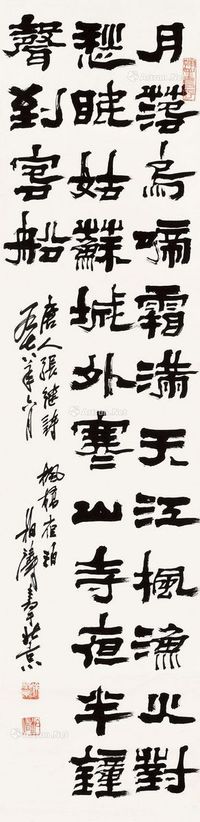 月落烏啼霜滿天江楓漁火對
愁眠姑蘇城外寒山寺夜半鐘
聲到客船
唐人張繼詩 楓橋夜泊
一九七八年六月